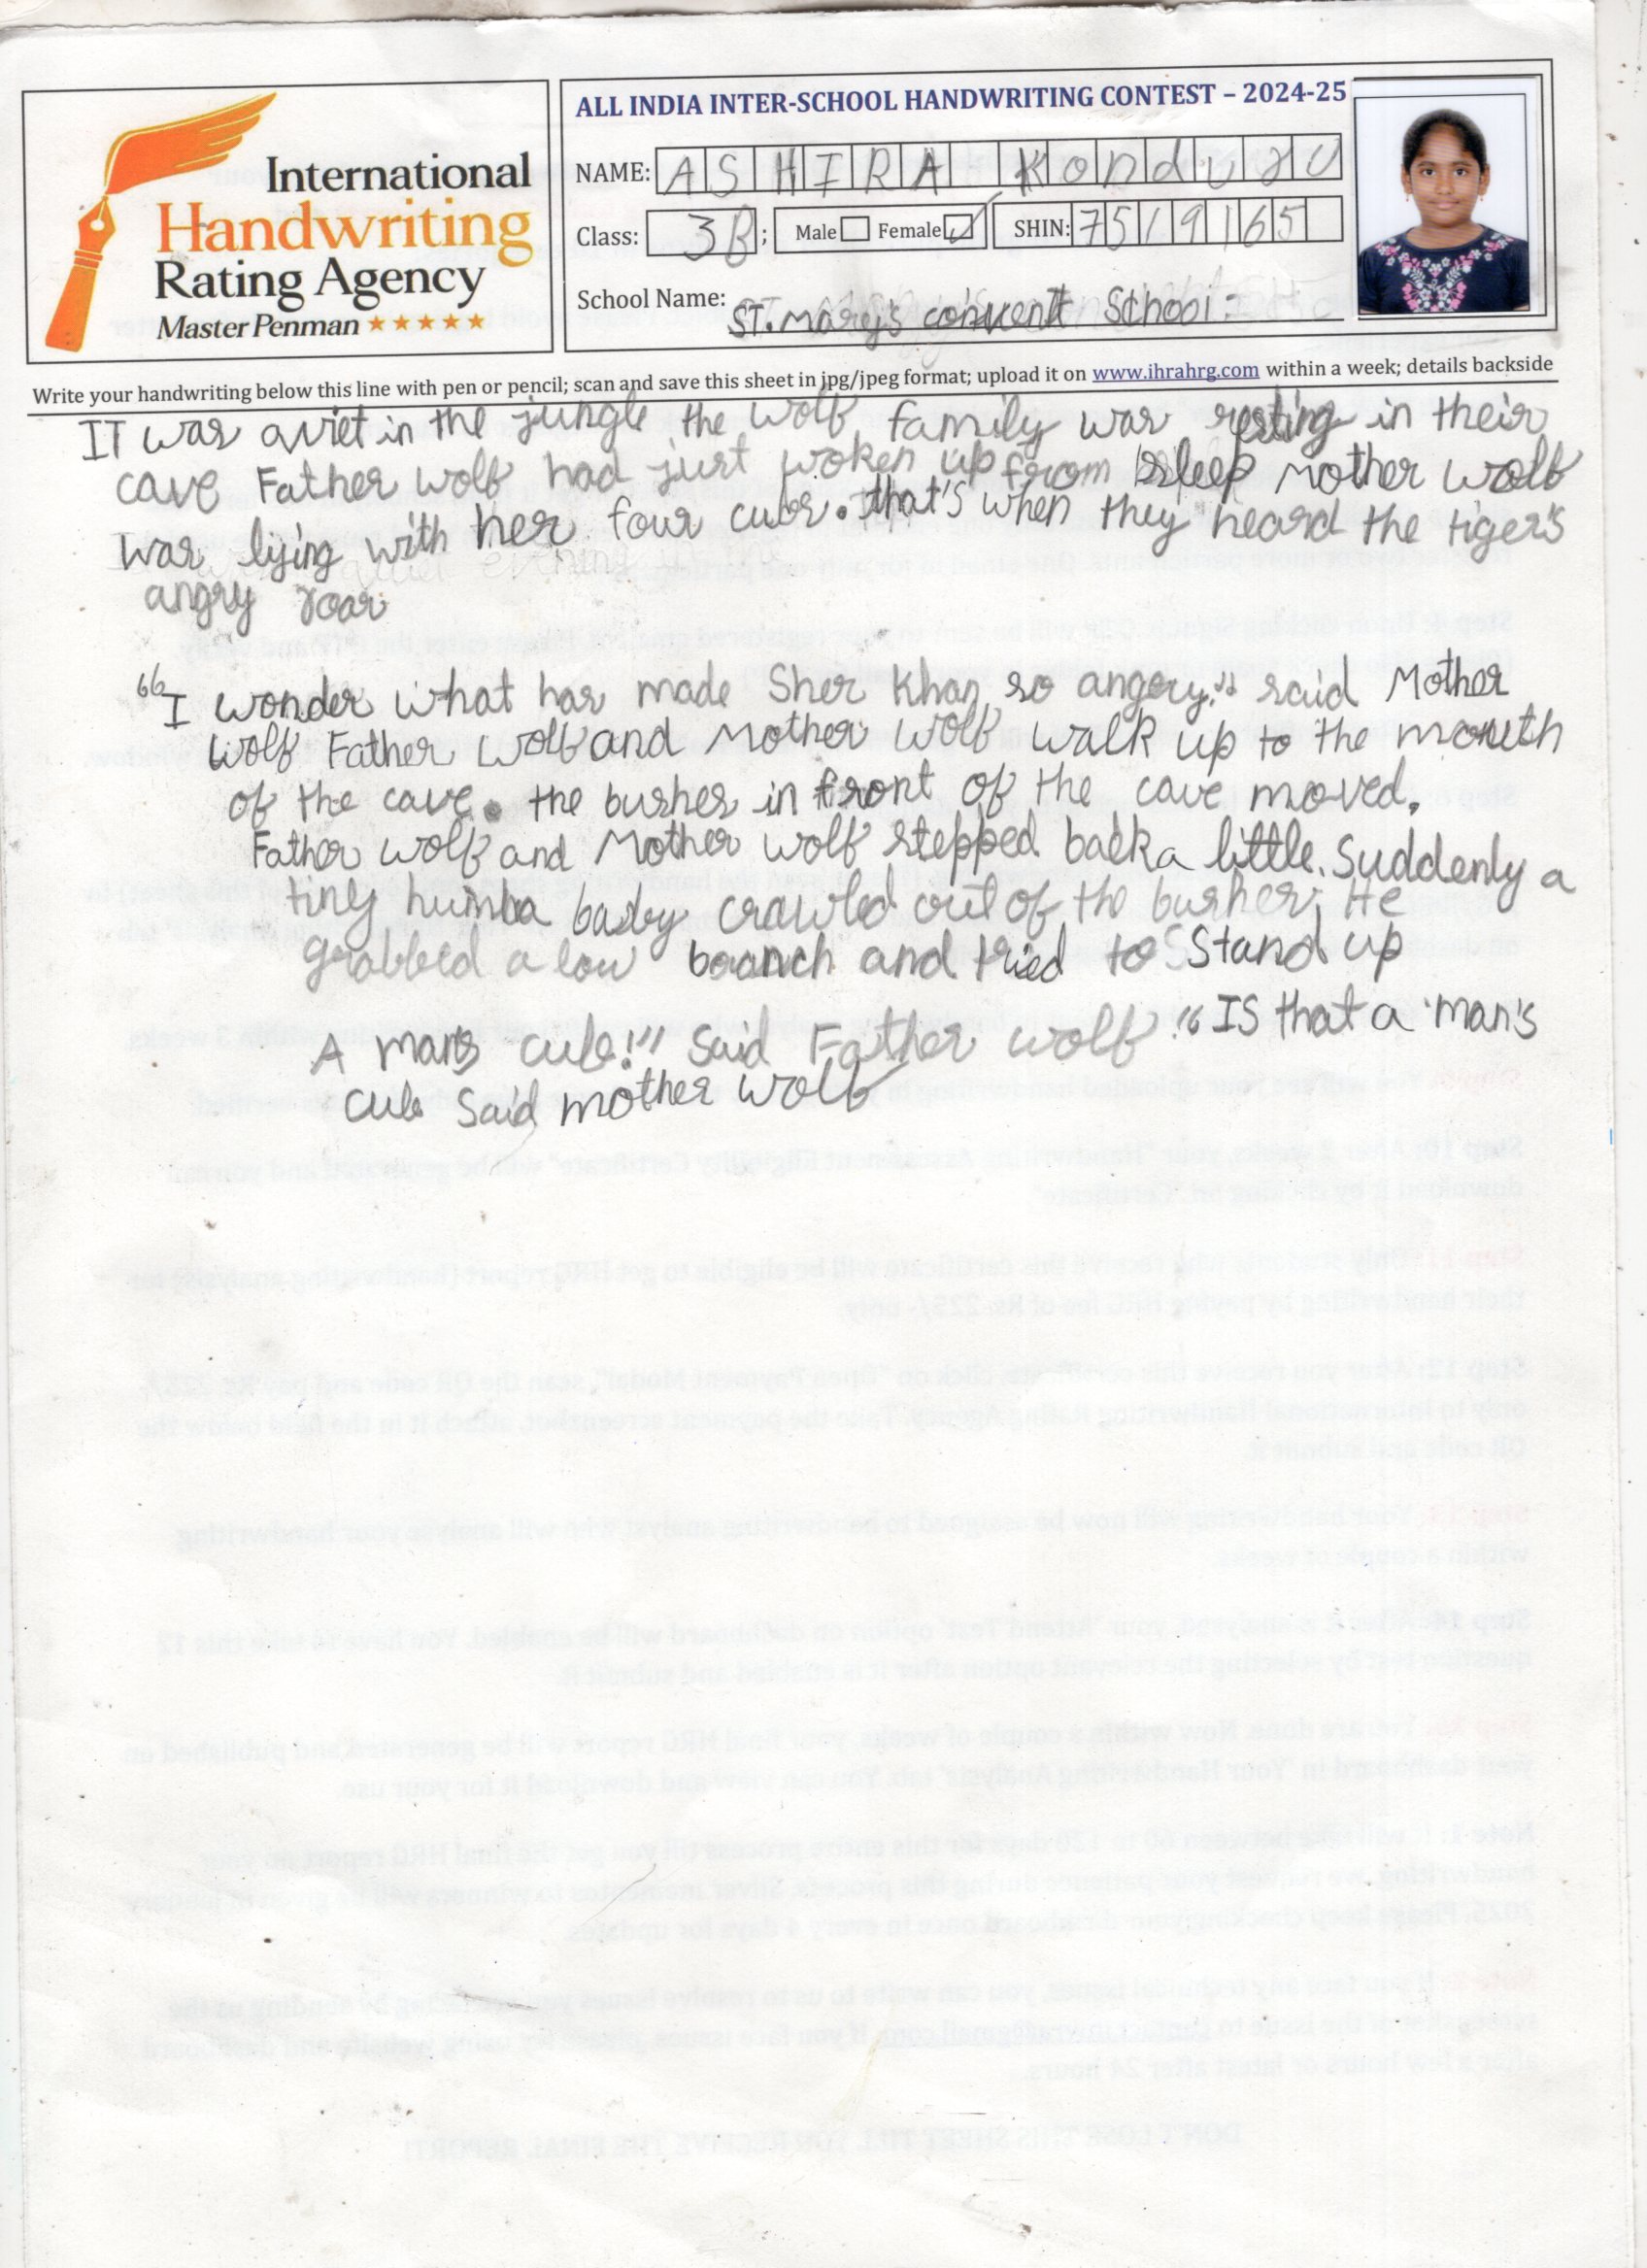 International
Handwriting
Rating Agency
Master Penman
ALL INDIA INTER-SCHOOL HANDWRITING CONTEST – 2024-25
NAME: ASHIRA Konduru
Class: 3B; Male Female SHIN: 7519165
School Name: ST. Mary's convent School
Write your handwriting below this line with pen or pencil; scan and save this sheet in jpg/jpeg format; upload it on www.ihrahrg.com within a week; details backside
IT was quiet in the jungle the wolf family was resting in their
cave Father wolf had just woken up from sleep Mother wolf
was lying with her four cubs. that's when they heard the tiger's
angry roar
"I wonder what has made Sher Khan so angry." said Mother
wolf Father wolf and Mother wolf walk up to the mouth
of the cave. the bushes in front of the cave moved.
Father wolf and Mother wolf stepped back a little. Suddenly a
tiny humba baby crawled out of the bushes, He
grabbed a low branch and tried to Stand up
A man's cub!" said Father wolf "Is that a man's
cub said mother wolf